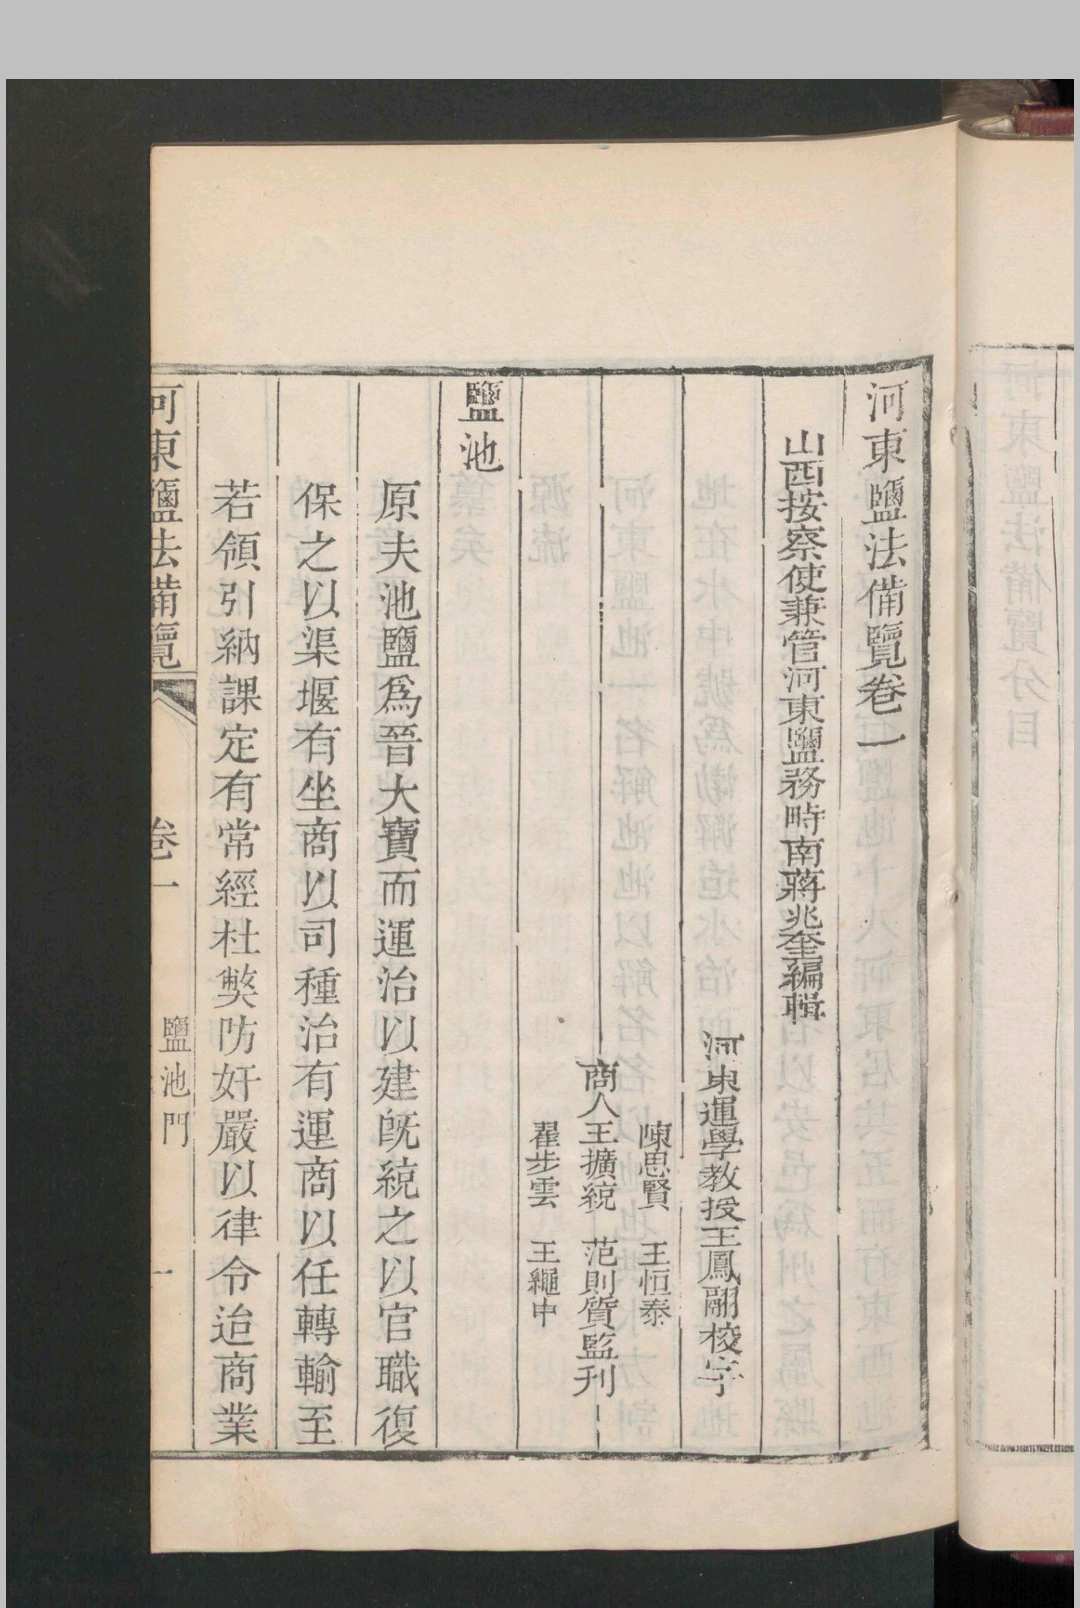 河東鹽法備覽卷一
山西按察使兼管河東鹽務時南蔣兆奎編輯
河東運學教授王鳳翮校字
陳思賢　王恒泰
商人王擴統　范則質監刊
翟步雲　王繩中
鹽池
原夫池鹽爲晉大寶而運治以建既統之以官職復
保之以渠堰有坐商以司種治有運商以任轉輸至
若領引納課定有常經杜獘防奸嚴以律令迨商業
河東鹽法備覽
卷一
鹽池門
一